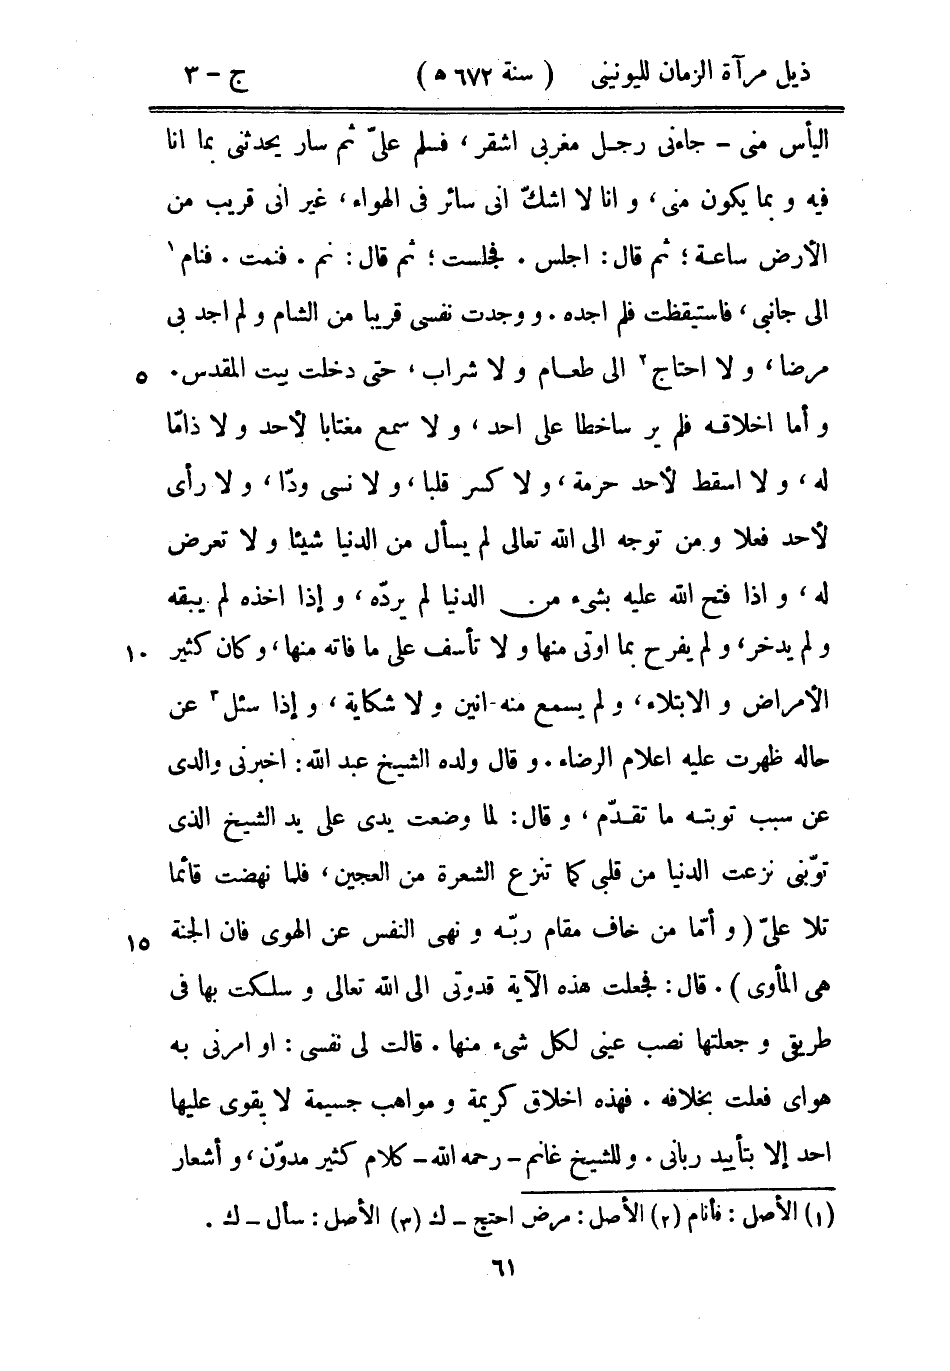 ذيل مرآة الزمان لليونينى ( سنة ٦٧٢ ھ ) ج – ٣
اليأس منى – جاءنى رجل مغربى اشقر ، فسلم علىّ ثم سار يحدثنى بما انا
فيه و بما يكون منى ، و انا لا اشكّ انى سائر فى الهواء ، غير انى قريب من
الأرض ساعة ؛ ثم قال : اجلس . فجلست ؛ ثم قال : نم . فنمت . فنام ١
الى جانبى ، فاستيقظت فلم اجده . و وجدت نفسى قريبا من الشام و لم اجد بى
مرضا ، و لا احتاج ٢ الى طعام و لا شراب ، حتى دخلت بيت المقدس . ٥
و أما اخلاقه فلم ير ساخطا على احد ، و لا سمع مغتابا لأحد و لا ذامّا
له ، و لا اسقط لأحد حرمة ، و لا كسر قلبا ، و لا نسى ودّا ، و لا رأى
لأحد فعلا و من توجه الى الله تعالى لم يسأل من الدنيا شيئا و لا تعرض
له ، و اذا فتح الله عليه بشىء من الدنيا لم يردّه ، و إذا اخذه لم يبقه
و لم يدخر ، و لم يفرح بما اوتى منها و لا تأسف على ما فاته منها ، و كان كثير ١٠
الأمراض و الابتلاء ، و لم يسمع منه انين و لا شكاية ، و إذا سئل ٣ عن
حاله ظهرت عليه اعلام الرضاء . و قال ولده الشيخ عبد الله : اخبرنى والدى
عن سبب توبته ما تقدّم ، و قال : لما وضعت يدى على يد الشيخ الذى
توّبنى نزعت الدنيا من قلبى كما تنزع الشعرة من العجين ، فلما نهضت قائما
تلا علىّ ( و أمّا من خاف مقام ربّه و نهى النفس عن الهوى فان الجنة ١٥
هى المأوى ) . قال : فجعلت هذه الآية قدوتى الى الله تعالى و سلكت بها فى
طريق و جعلتها نصب عينى لكل شىء منها . قالت لى نفسى : او امرنى به
هواى فعلت بخلافه . فهذه اخلاق كريمة و مواهب جسيمة لا يقوى عليها
احد إلا بتأييد ربانى . و للشيخ غانم – رحمه الله – كلام كثير مدوّن ، و أشعار
(١) الأصل : فأنام (٢) الأصل : مرض احتج – ك (٣) الأصل : سأل – ك .
٦١